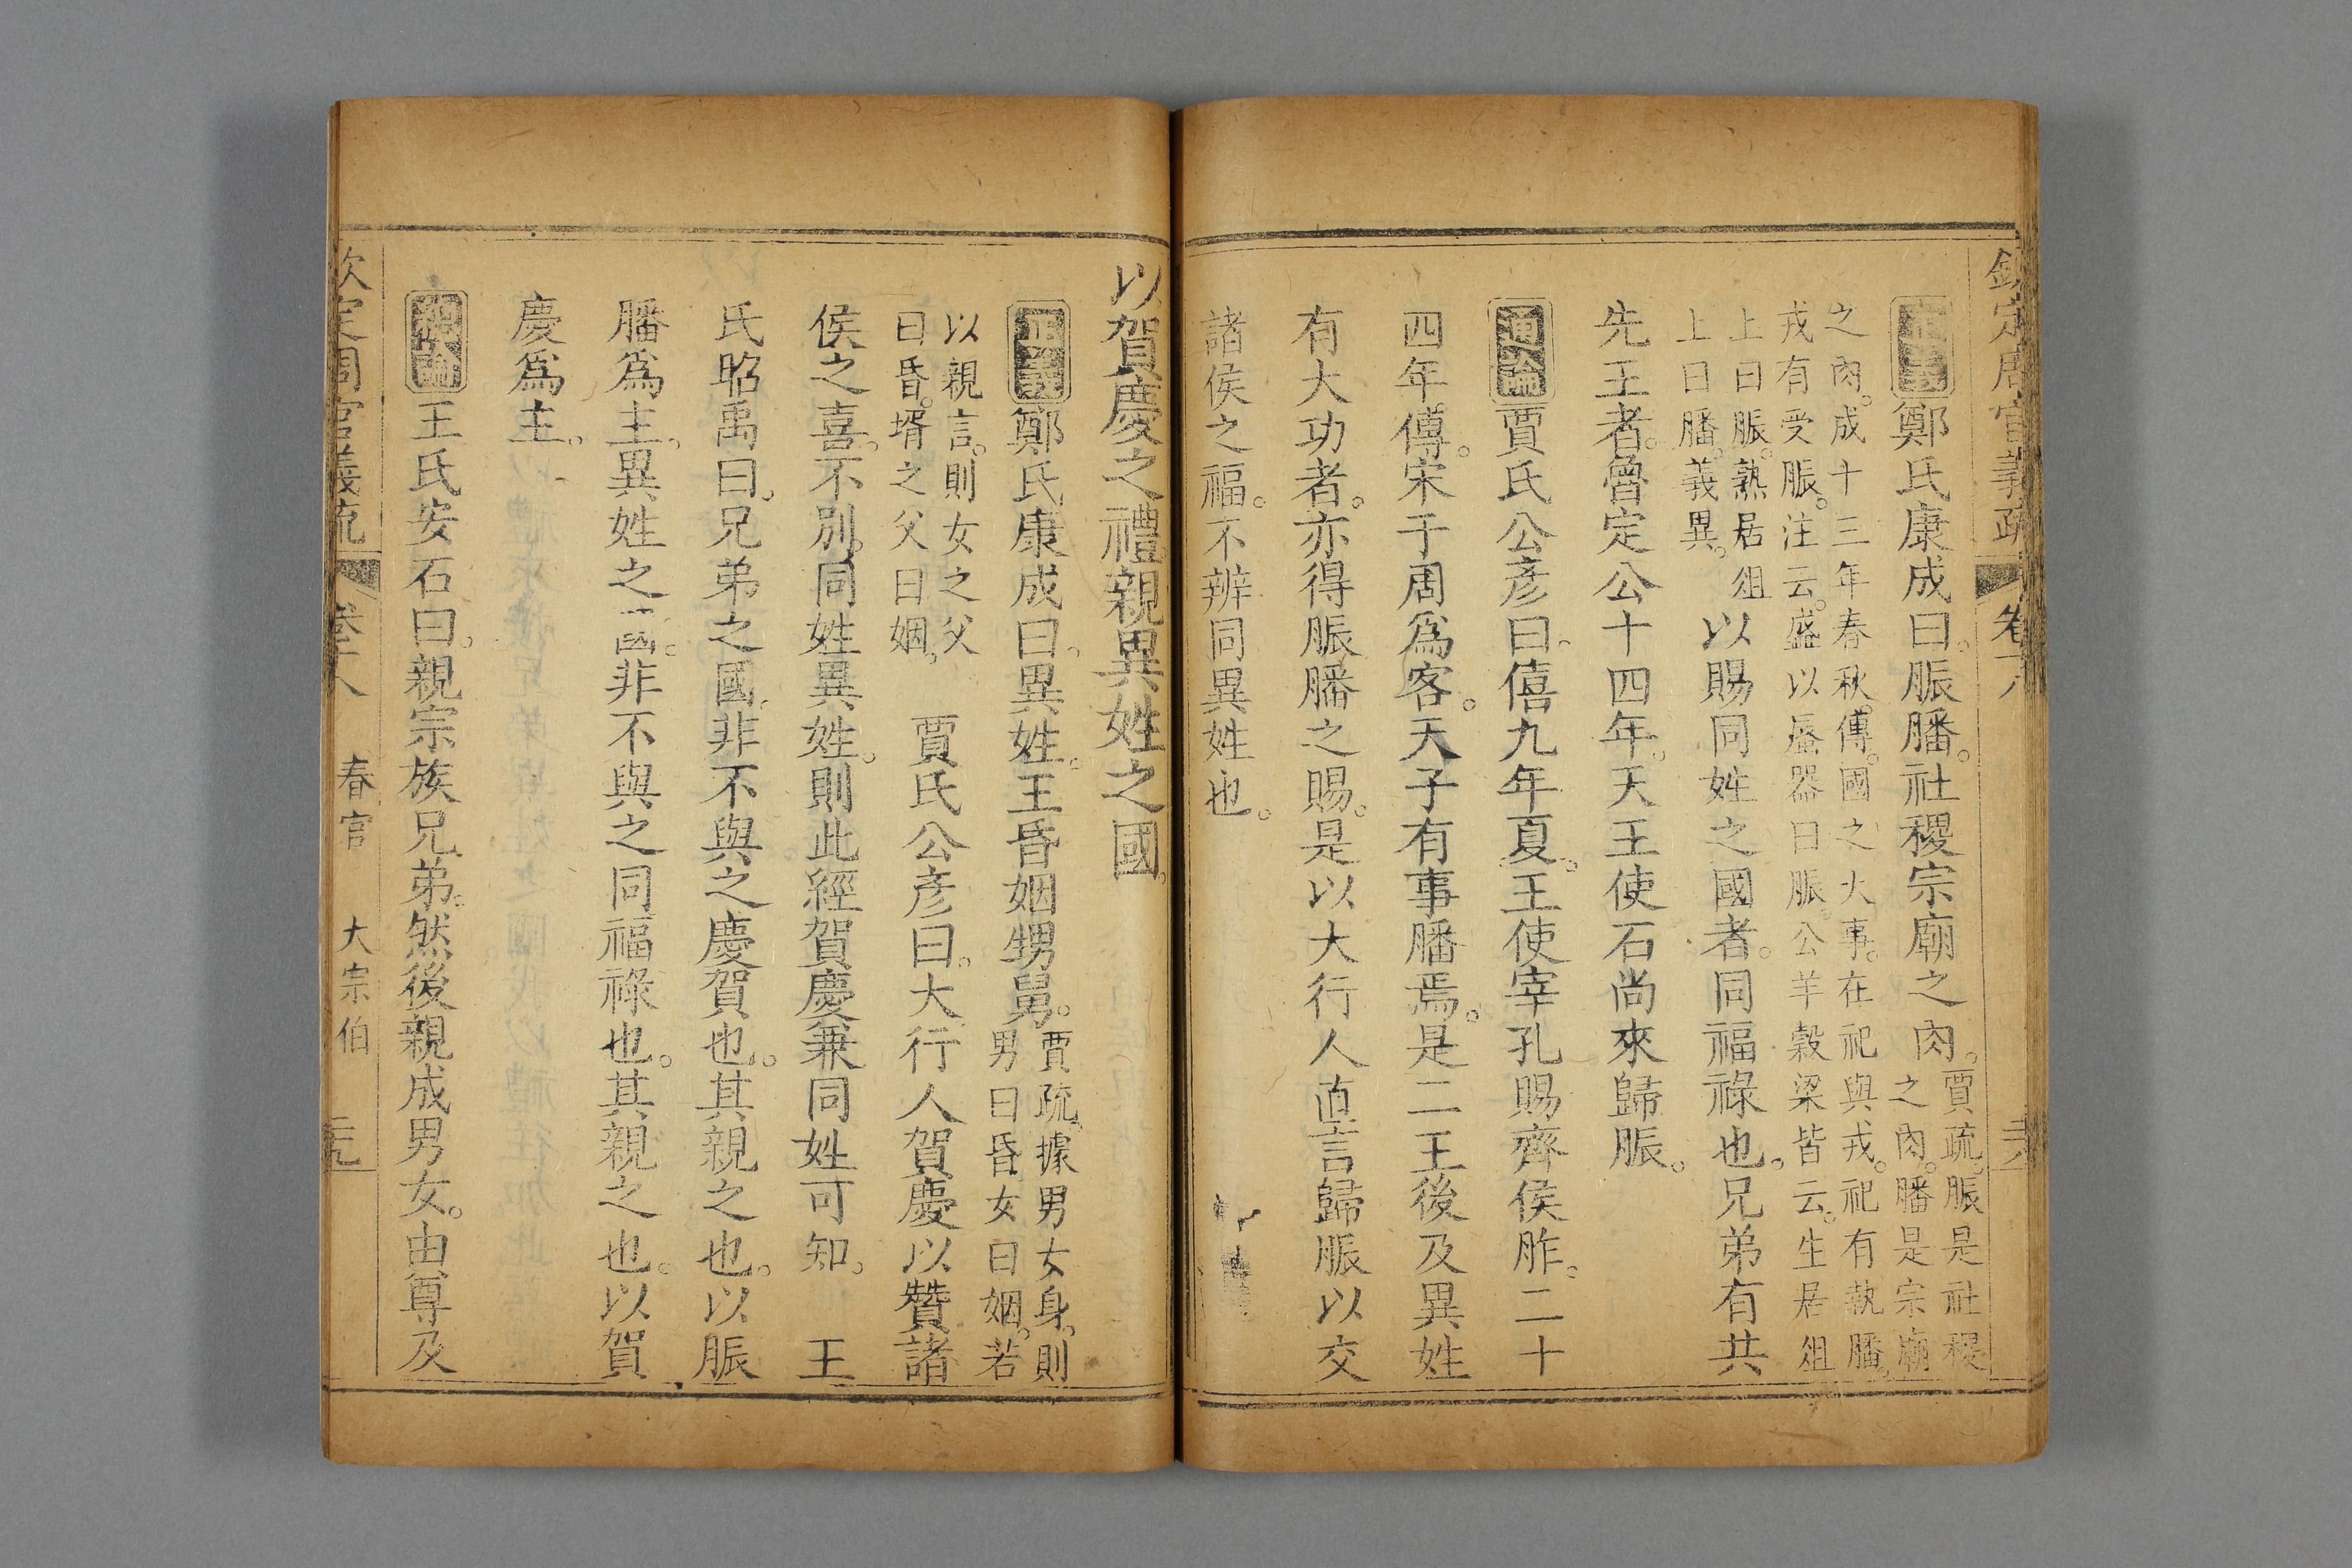 欽定周官義疏 卷十八
正義鄭氏康成曰。脤膰。社稷宗廟之肉。賈疏。脤是社稷
之肉。膰是宗廟
之肉。成十三年春秋傳。國之大事。在祀與戎。祀有執膰。
戎有受脤。注云。盛以蜃器曰脤。公羊穀梁皆云。生居俎
上曰脤。熟居俎
上曰膰。義異。以賜同姓之國者。同福祿也。兄弟有共
先王者。魯定公十四年。天王使石尚來歸脤。
通論賈氏公彥曰。僖九年夏。王使宰孔賜齊侯胙。二十
四年。傳。宋于周爲客。天子有事膰焉。是二王後及異姓
有大功者。亦得脤膰之賜。是以大行人直言歸脤以交
諸侯之福。不辨同異姓也。
以賀慶之禮。親異姓之國。
正義鄭氏康成曰。異姓。王昏姻甥舅。賈疏。據男女身。則
男曰昏。女曰姻。若
以親言。則女之父
曰昏。壻之父曰姻。賈氏公彥曰。大行人賀慶以贊諸
侯之喜。不別同姓異姓。則此經賀慶兼同姓可知。王
氏昭禹曰。兄弟之國。非不與之慶賀也。其親之也。以脤
膰爲主。異姓之國。非不與之同福祿也。其親之也。以賀
慶爲主。
總論王氏安石曰。親宗族兄弟。然後親成男女。由尊及
欽定周官義疏 卷十八 春官 大宗伯 三九